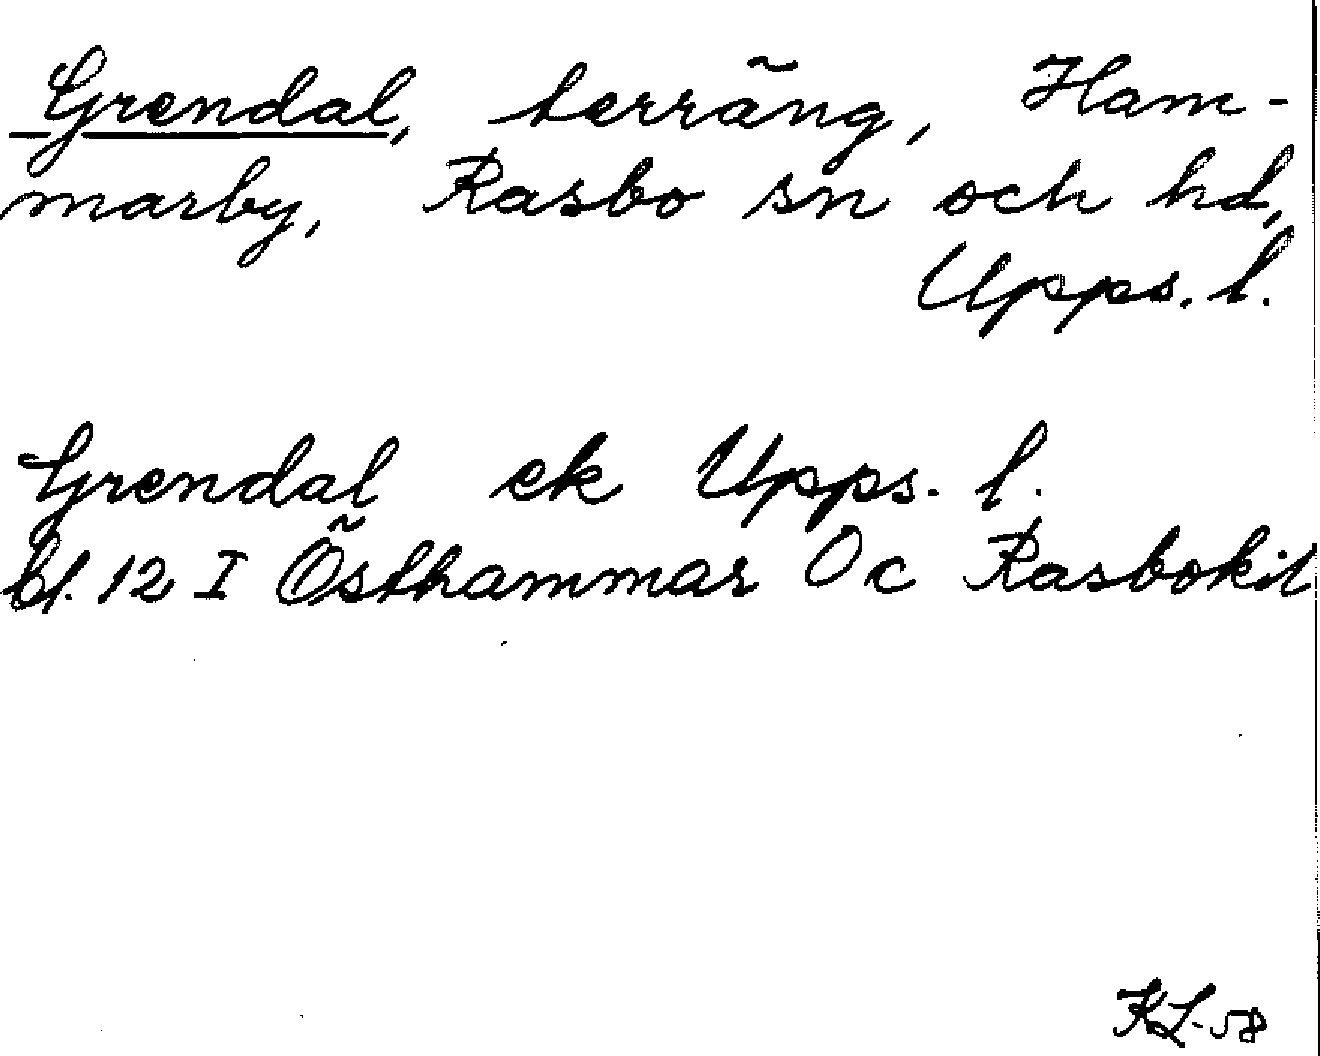 Grendal, terräng, Ham-
marby, Rasbo sn och hd,
Upps. l.
Grendal ek Upps. l.
bl. 12 I Östhammar Oc Rasbokil
KL-58